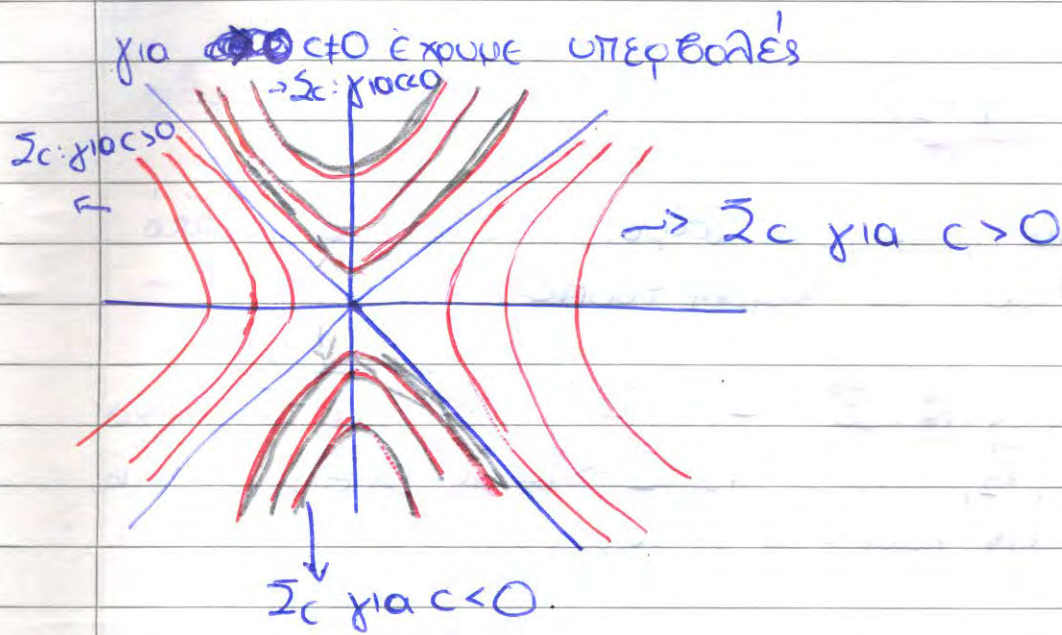 για c≠0 έχουμε υπερβολές
→Σc: για c<0
Σc: για c>0
←
→ Σc για c>0
Σc για c<0.